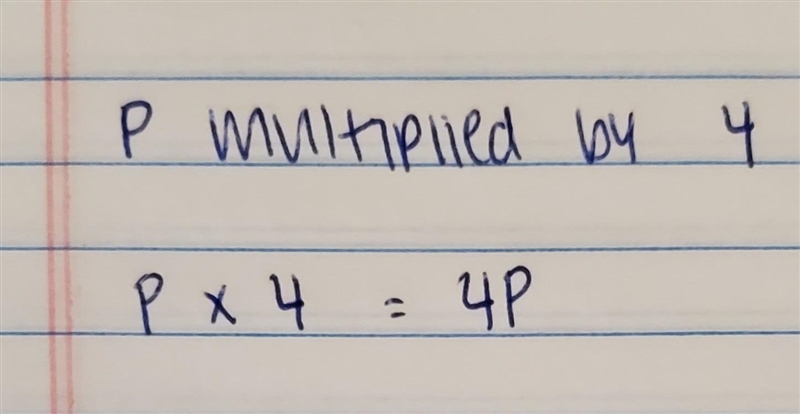 P multiplied by 4
P x 4 = 4P